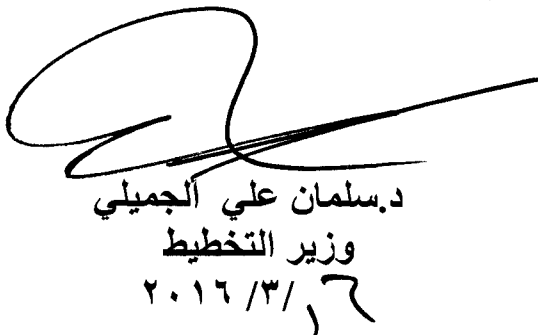 د.سلمان علي الجميلي
وزير التخطيط
١٦/ ٣/ ٢٠١٦